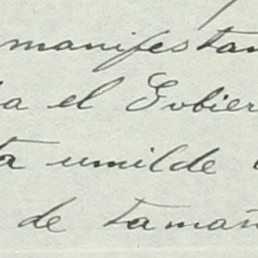 manifestan
a el Gobier
ta umilde
de tamañ